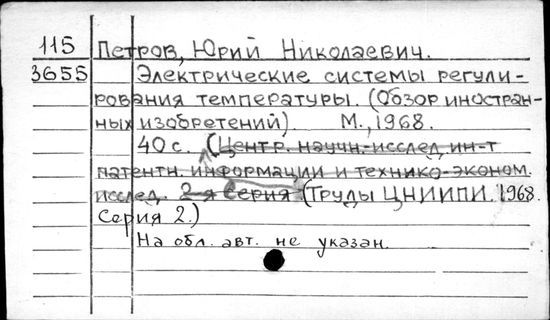 115 Петров, Юрий Николаевич.
3655 Электрические системы регули-
рования температуры. (Обзор иностран-
ных изобретений). М., 1968.
40 с. (Центр. научн.-исслед. ин-т
патентн. информации и технико-эконом.
исслед. 2-я серия (Труды ЦНИИПИ. 1968.
Серия 2.)
На обл. авт. не указан.